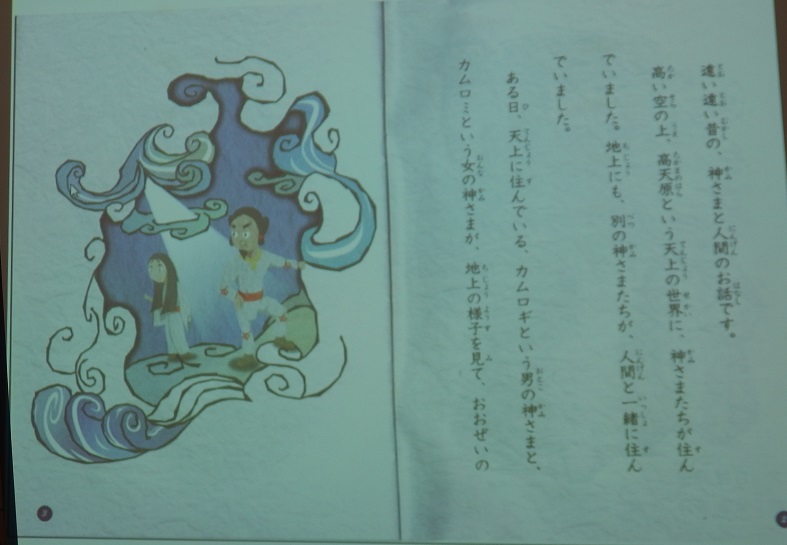 遠い遠い昔の、神さまと人間のお話です。
高い空の上、高天原という天上の世界に、神さまたちが住ん
でいました。地上にも、別の神さまたちが、人間と一緒に住ん
でいました。
ある日、天上に住んでいる、カムロギという男の神さまと、
カムロミという女の神さまが、地上の様子を見て、おおぜいの
3